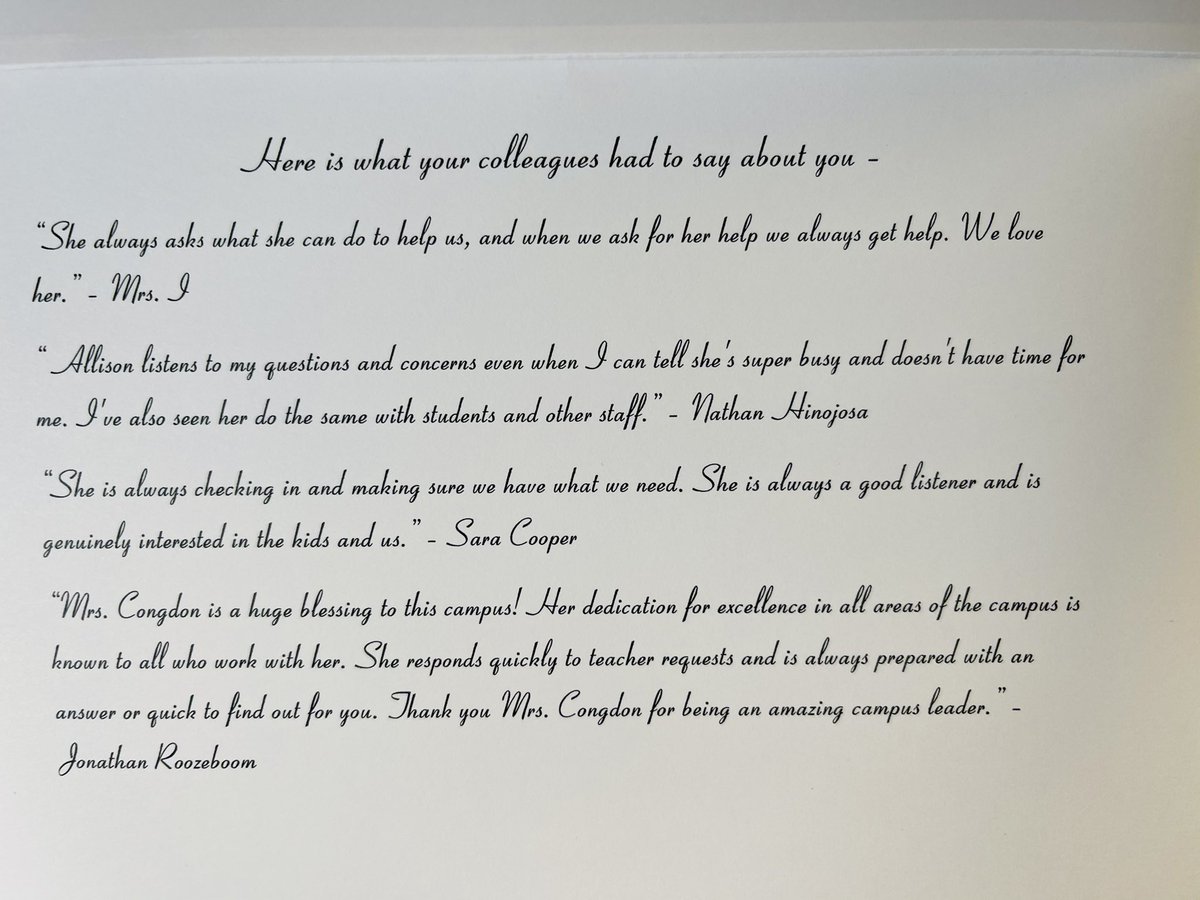 Here is what your colleagues had to say about you -
“She always asks what she can do to help us, and when we ask for her help we always get help. We love
her.” - Mrs. I
“ Allison listens to my questions and concerns even when I can tell she's super busy and doesn't have time for
me. I've also seen her do the same with students and other staff.” - Nathan Hinojosa
“She is always checking in and making sure we have what we need. She is always a good listener and is
genuinely interested in the kids and us.” - Sara Cooper
“Mrs. Congdon is a huge blessing to this campus! Her dedication for excellence in all areas of the campus is
known to all who work with her. She responds quickly to teacher requests and is always prepared with an
answer or quick to find out for you. Thank you Mrs. Congdon for being an amazing campus leader.” -
Jonathan Roozeboom